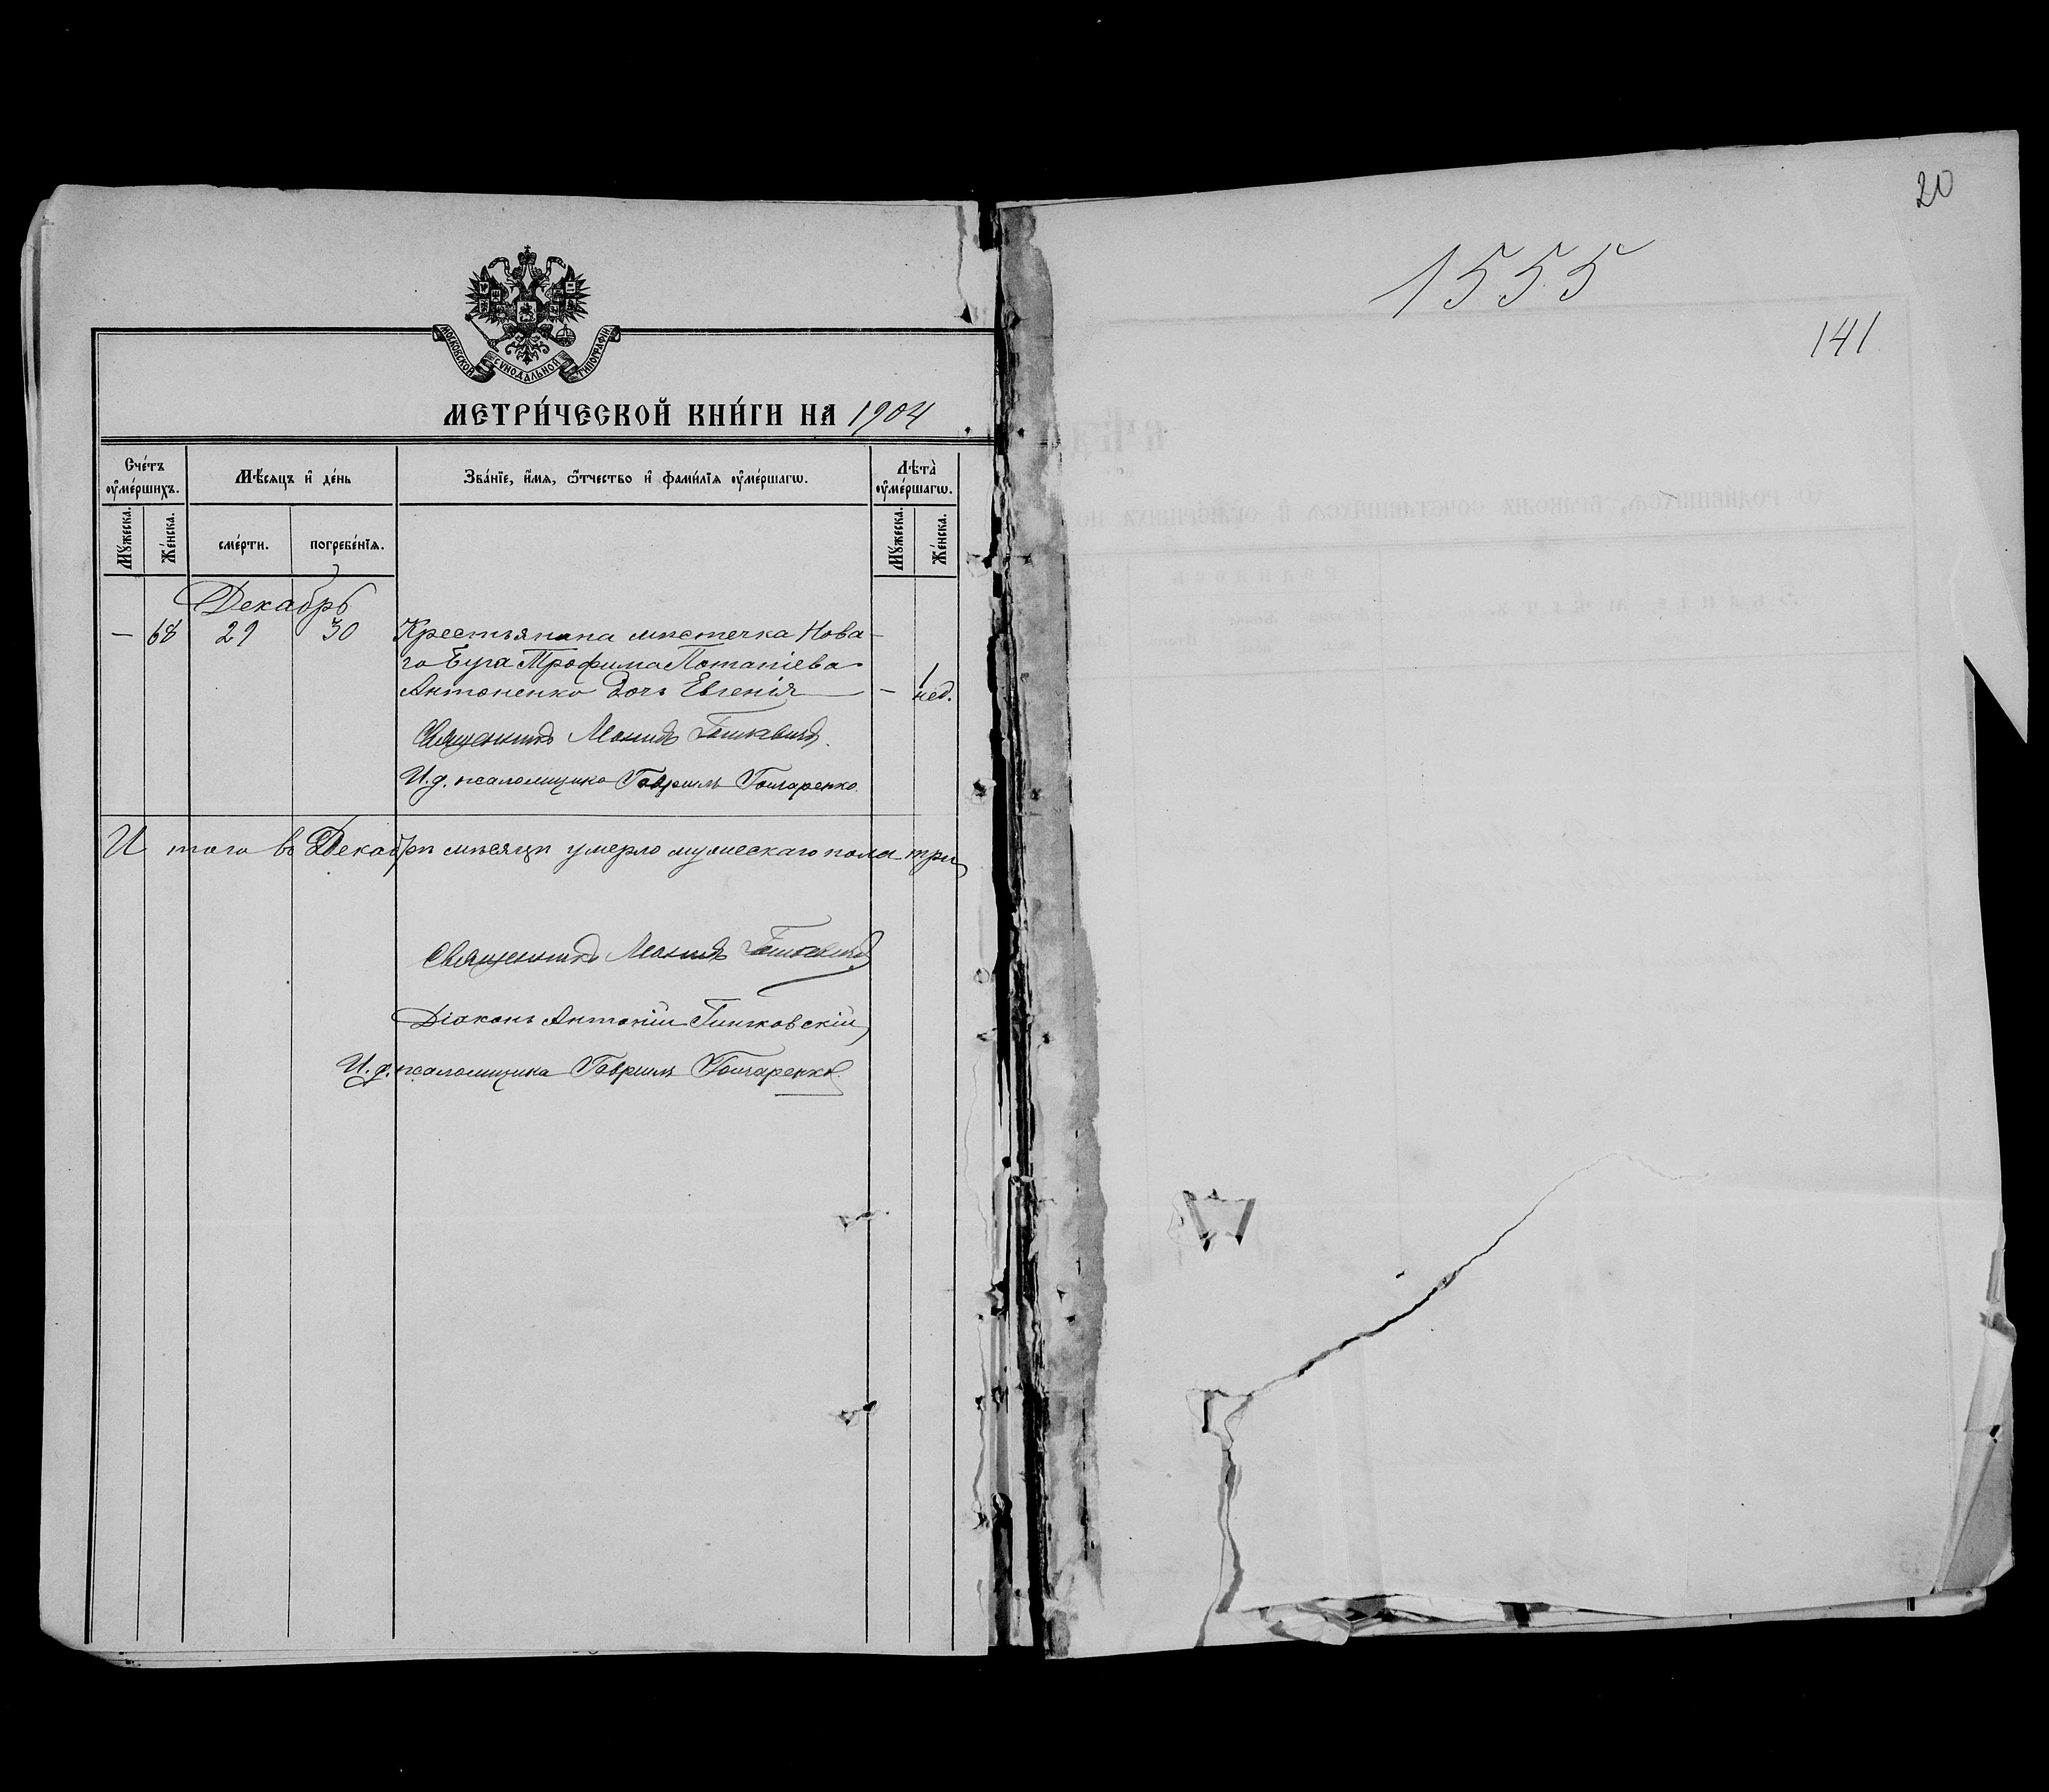 МОСКОВСКОЙ СѴНОДАЛЬНОЙ ТИПОГРАФІИ
МЕТРИ́ЧЕСКОЙ КНИ́ГИ НА 1904
Сче́тъ ᲂу҆ме́ршихъ.
Мѣ́сяцъ и҆ де́нь
Зва́нїе, и҆́мя, ѻ҆́тчество и҆ фами́лїя ᲂу҆ме́ршагѡ.
Лѣта̀ ᲂу҆ме́ршагѡ.
Мꙋ́жеска. Же́нска.
сме́рти. погребе́нїя.
Мꙋ́жеска. Же́нска.
Декабрь
— 68 29 30 Крестьянина мѣстечка Нова-
го Буга Трофима Потапіева
Антоненко дочь Евгенія — — 1 нед.
Священникъ Леонидъ
И.д. псаломщика Гавріилъ Гончаренко.
И того въ Декабрѣ мѣсяцѣ умерло мужескаго пола три
Священникъ Леонидъ
Діаконъ Антоній
И.д. псаломщика Гавріилъ Гончаренко.
20
1555
141